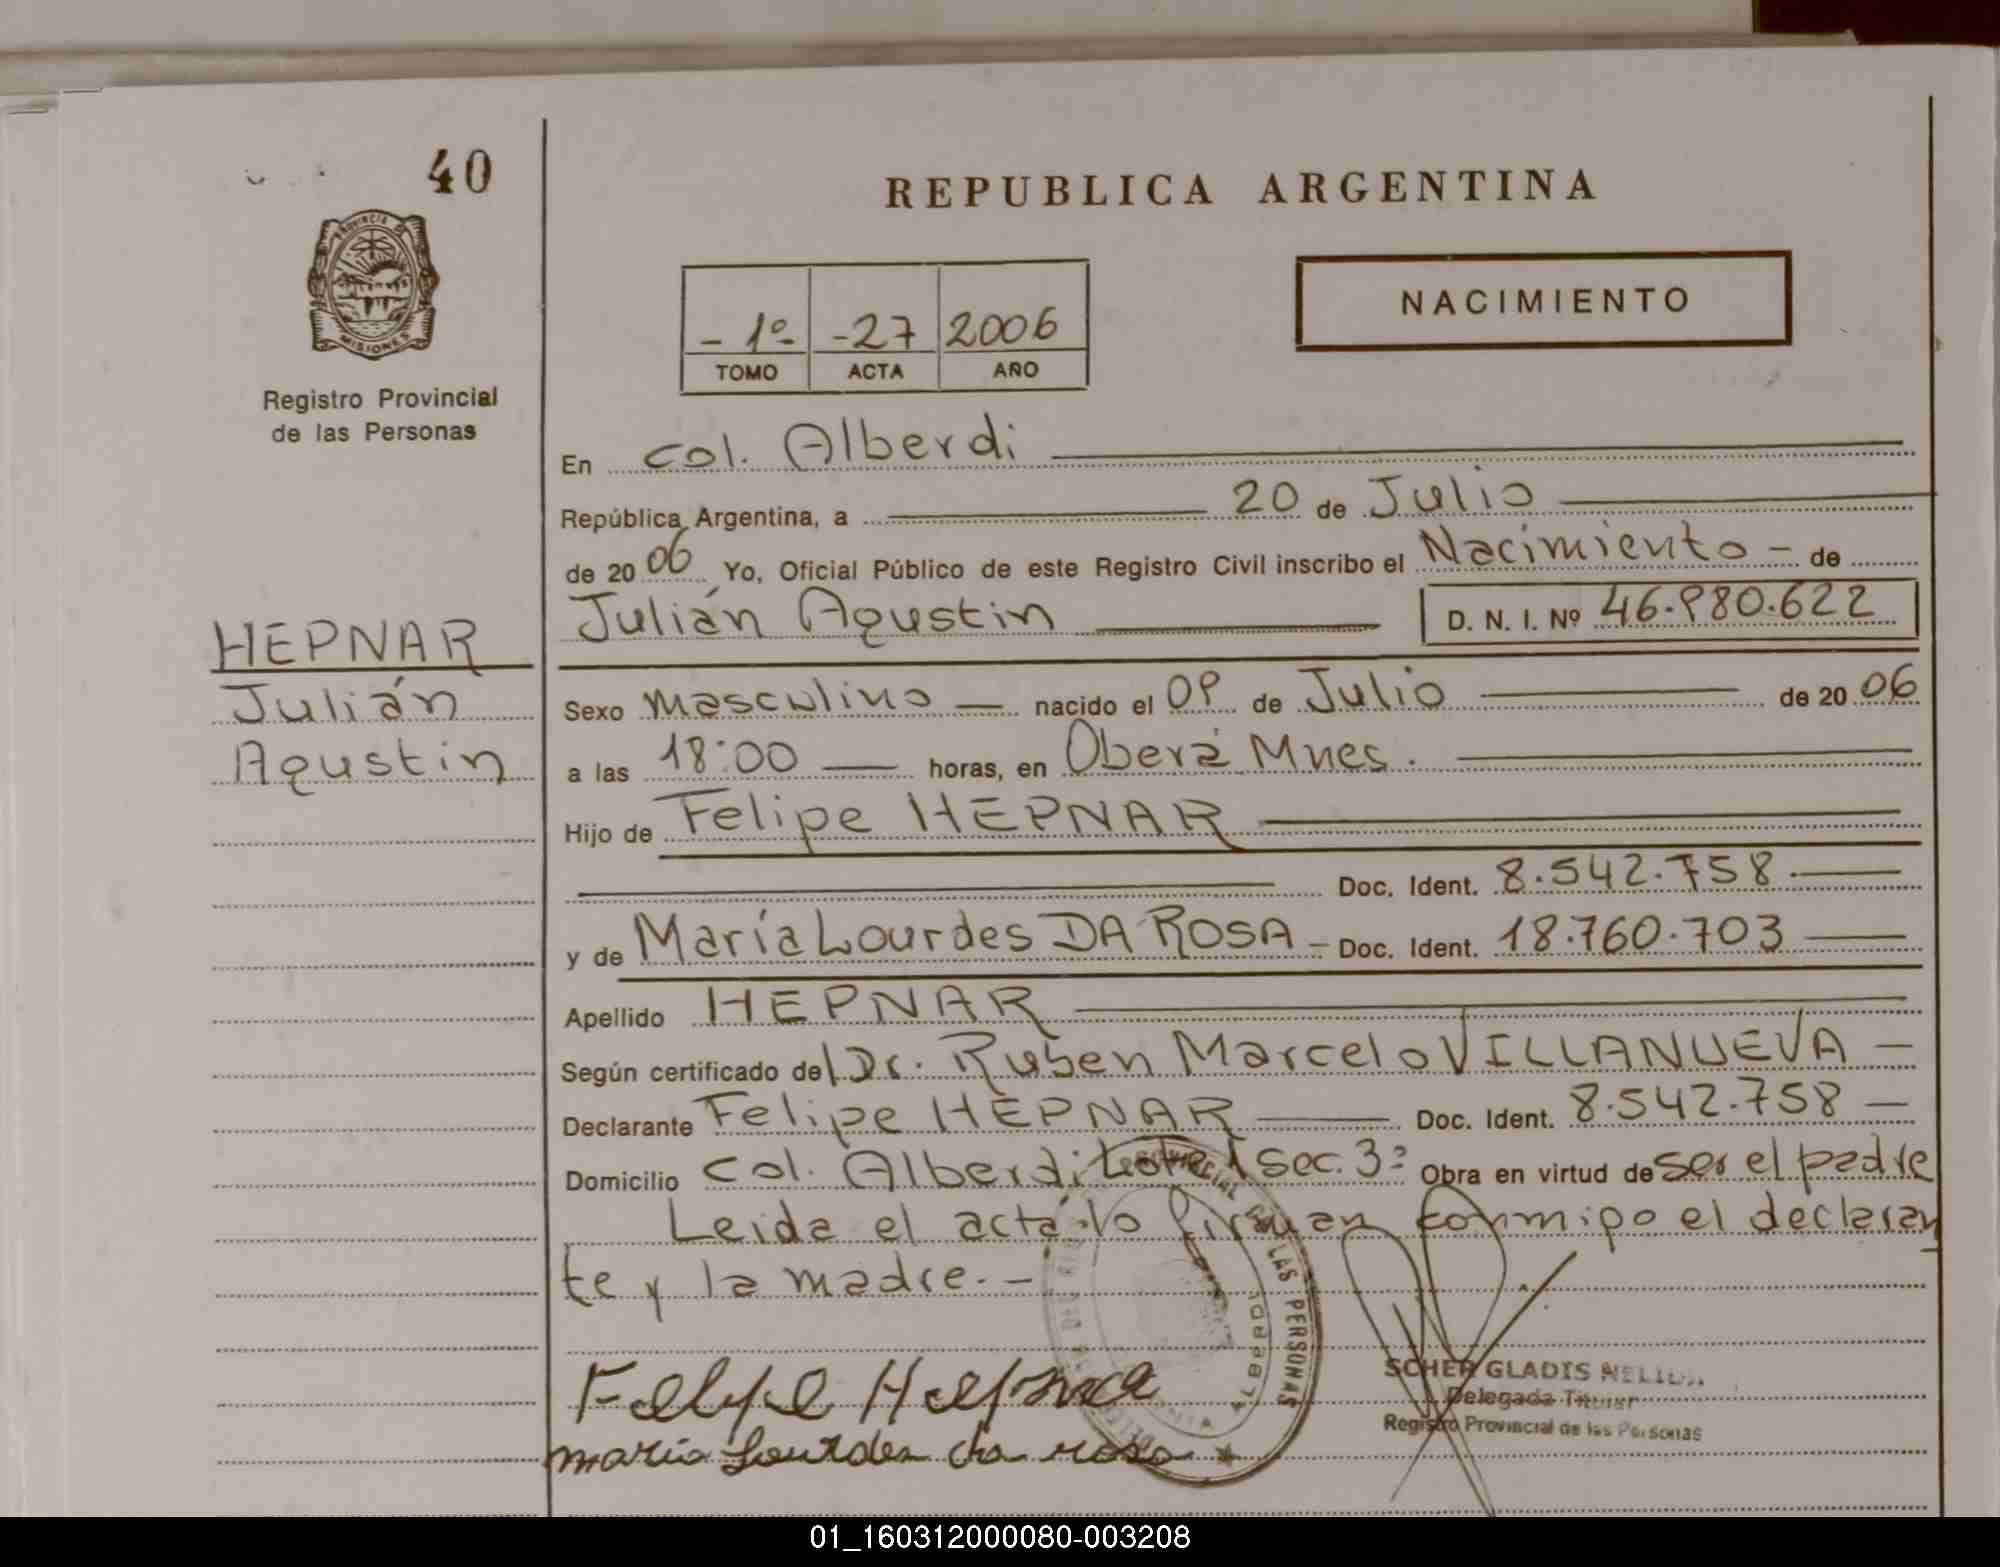 40
PROVINCIA DE
MISIONES
Registro Provincial
de las Personas
HEPNAR
Julián
Agustin
REPUBLICA ARGENTINA
- 1º - -27 2006
TOMO ACTA AÑO
NACIMIENTO
En col. Alberdi
República Argentina, a 20 de Julio
de 2006 Yo, Oficial Público de este Registro Civil inscribo el Nacimiento - de
Julián Agustin D. N. I. Nº 46.980.622
Sexo masculino nacido el 09 de Julio de 2006
a las 18:00 horas, en Oberá Mnes.
Hijo de Felipe HEPNAR
Doc. Ident. 8.542.758
y de María Lourdes DA ROSA - Doc. Ident. 18.760.703
Apellido HEPNAR
Según certificado del Dr. Ruben Marcelo VILLANUEVA
Declarante Felipe HEPNAR Doc. Ident. 8.542.758
Domicilio col. Alberdi Lote 1 Sec. 3ª Obra en virtud de ser el padre
Leida el acta lo firman conmigo el declaran
te y la madre. -
LAS PERSONAS
Felipe Hepnar
maria Lourdes da rosa
SCHER GLADIS NELIDA
Delegada Titular
Registro Provincial de las Personas
01_160312000080-003208